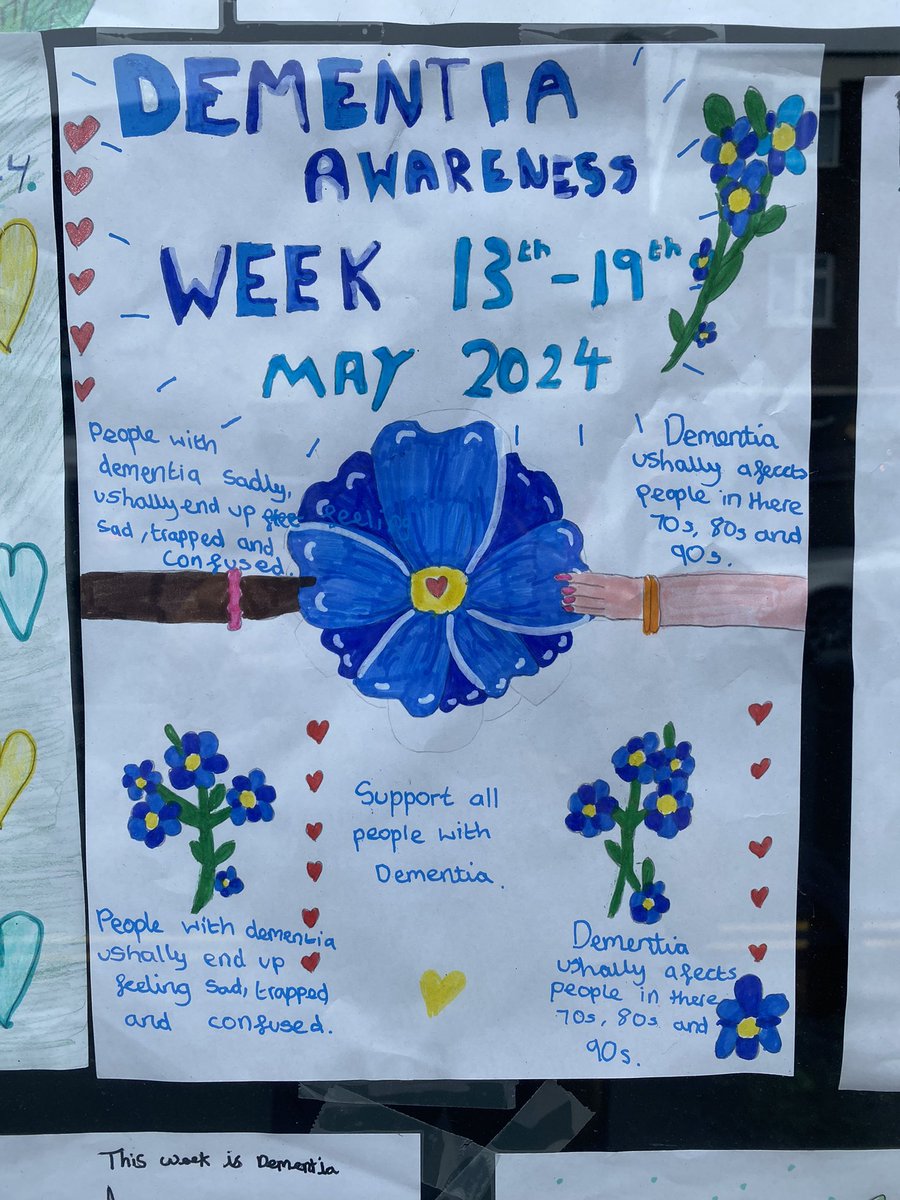 DEMENTIA
AWARENESS
WEEK 13th-19th
MAY 2024
People with
dementia sadly,
ushally end up feeling
sad, trapped and
confused.
Dementia
ushally afects
people in there
70s, 80s and
90s.
Support all
people with
Dementia.
People with dementia
ushally end up
feeling sad, trapped
and confused.
Dementia
ushally afects
people in there
70s, 80s and
90s.
4.
This week is Dementia